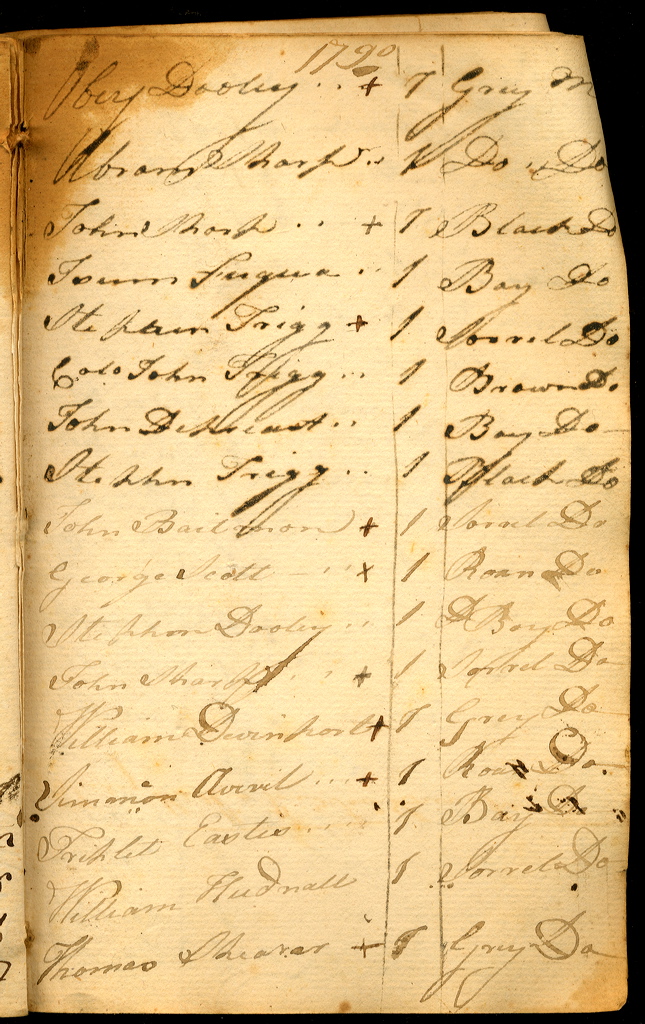 1790
Obey Dooley .. + 1 Grey M
Abram Sharp .. 1 Do .. Do
John Sharp .. + 1 Black Do
Isum Fuqua .. 1 Bay Do
Stephen Trigg + 1 Sorrel Do
Colo John Trigg ... 1 Brown Do
John .. 1 Bay Do
Stephn Trigg .. 1 Black Do
John Bateman + 1 Sorrel Do
George Scott - .. x 1 Roan Do
Stephon Dooley .. 1 D Bay Do
John Sharp .. + 1 Sorrel Do
William Devinport + 1 Grey Do
Simmon Averil ... + 1 Roan Do
Triplet Eastis .... 1 Bay Do
William Hudnall 1 Sorrel Do
Thomas Shearer + 1 Grey Do